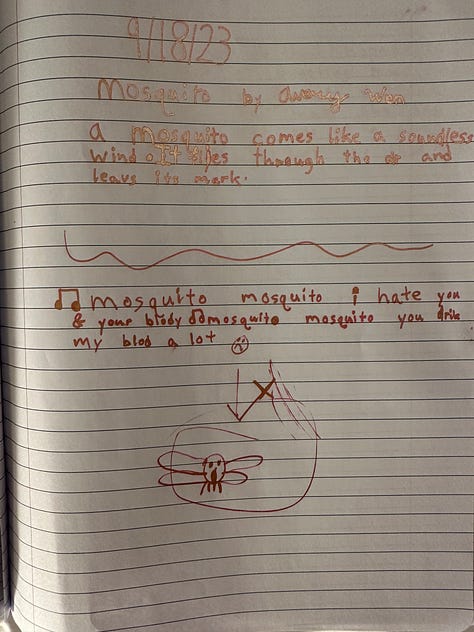 9/18/23
Mosquito by Avery Wen
a mosquito comes like a soundless
wind. It flies through the air and
leavs its mark.
mosquito mosquito i hate you
& your bloody mosquito mosquito you drik
my blod a lot